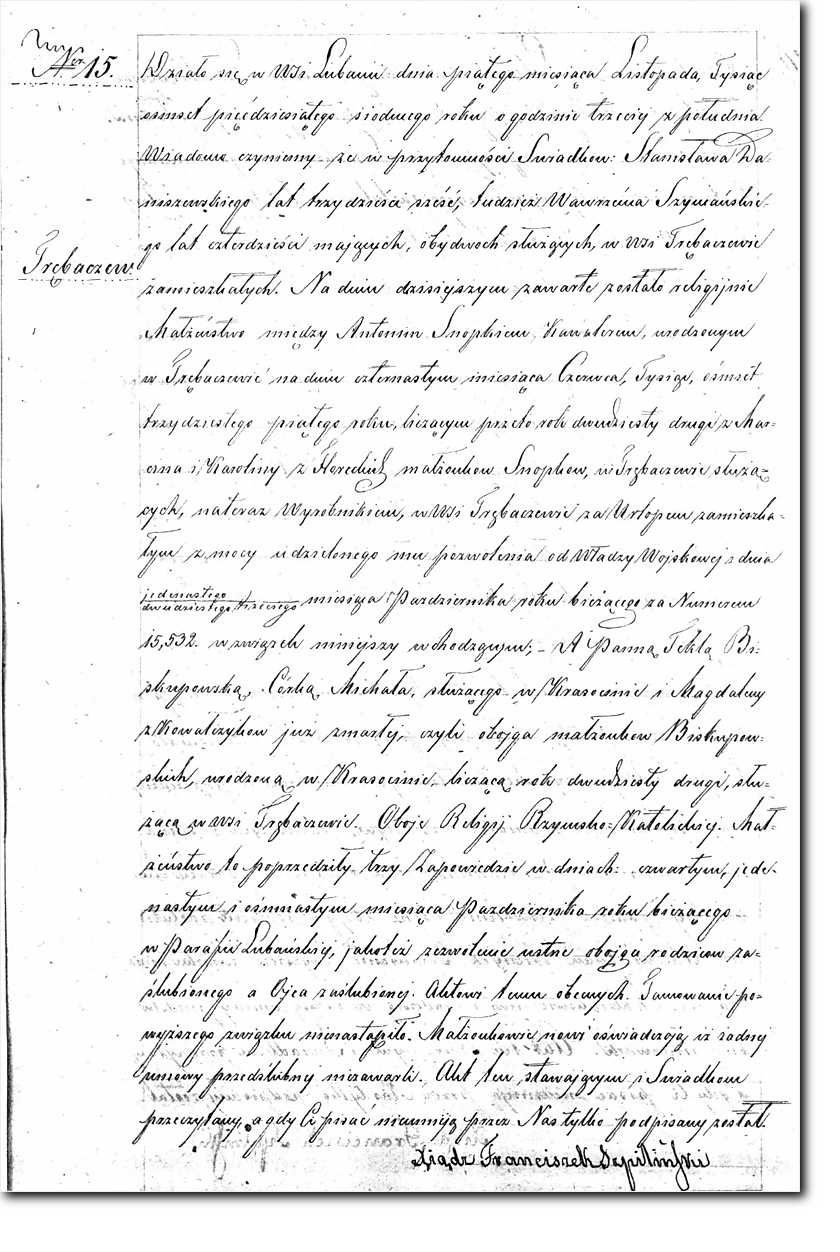 Ner 15.
Działo się w Wsi Lubaniu dnia piątego miesiąca Listopada, Tysiąc
ośmset pięćdziesiątego siodmego roku o godzinie trzeciej z południa
Wiadomo czyniemy że w przytomności Swiadkow: Stanisława Da-
niszewskiego lat trzydzieści sześć, tudzież Wawrzeńca Szymańskie-
go lat czterdzieści mających, obydwoch służących, w Wsi Trębaczewie
Trębaczew.
zamieszkałych. Na dniu dzisiejszym zawarte zostało religijnie
Małżeństwo między Antonim Snopkiem Kawalerem, urodzonym
w Trębaczewie na dniu czternastym miesiąca Czerwca, Tysiąc, ośmset
trzydziestego piątego roku, liczącym przeto rok dwudziesty drugi z Mar-
cina i Karoliny z małżonkow Snopkow, w Trębaczewie służą-
cych, nateraz Wyrobnikiem, w Wsi Trębaczewie za Urlopem zamieszka-
łym z mocy udzielonego mu pozwolenia od Władzy Wojskowej z dnia
jedenastego
dwudziestego trzeciego miesiąca Pazdziernika roku bieżącego za Numerem
15,532. w związek niniejszy wchodzącym; – A Panną Teklą Bi-
skupowską, Córką Michała, służącego w Krasocinie i Magdaleny
z Kowalczykow już zmarłej, czyli obojga małżonkow Biskupow-
skich, urodzoną w Krasocinie, liczącą rok dwudziesty drugi, słu-
żącą w Wsi Trębaczewie. Oboje Religij Rzymsko-Katolickiej. Mał-
żeństwo to poprzedziły trzy Zapowiedzie w dniach: czwartym, jede-
nastym i ośmnastym miesiąca Pazdziernika roku bieżącego
w Parafii Lubańskiej, jakoteż zezwolenie ustne obojga rodzicow za-
ślubionego a Ojca zaślubionej. Aktowi temu obecnych. Tamowanie po-
wyższego związku nienastąpiło. Małżonkowie nowi oświadczają iż żadnej
umowy przedślubnej niezawarli. Akt ten stawającym i Swiadkom
przeczytany, a gdy Ci pisać nieumieją przez Nas tylko podpisany został.
Xiądz Franciszek Szpiliński